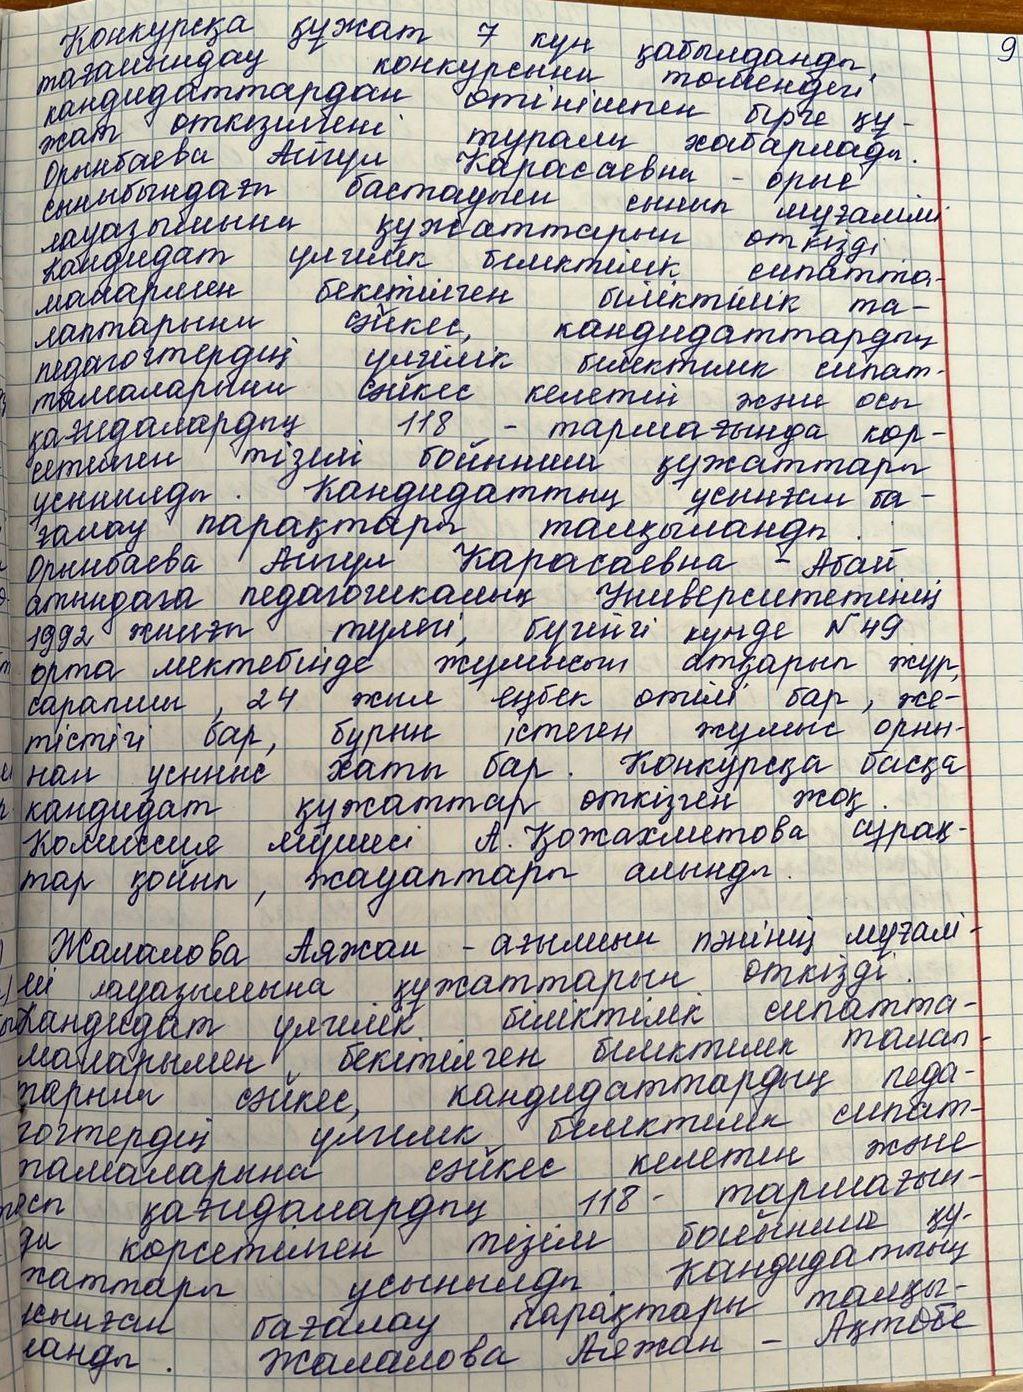 9
Конкурсқа құжат 7 күн қабылданды,
тағайындау конкурсына төмендегі
кандидаттардан өтінішпен бірге құ-
жат өткізілгені туралы хабарлады.
Орынбаева Айгүл Карасаевна - орыс
сыныбындағы бастауыш сынып мұғалімі
лауазымына құжаттарын өткізді
Кандидат үлгілік біліктілік сипатта-
малармен бекітілген біліктілік та-
лаптарына сәйкес, кандидаттардың
педагогтердің үлгілік біліктілік сипат-
тамаларына сәйкес келетін және осы
қағидалардың 118 - тармағында көр-
сетілген тізімі бойынша құжаттары
ұсынылды. Кандидаттың ұсынған ба-
ғалау парақтары талқыланды.
Орынбаева Айгүл Карасаевна - Абай
атындаға педагогикалық Университетінің
1992 жылғы түлегі, бүгінгі күнде №49
орта мектебінде жұмысын атқарып жүр,
сарапшы, 24 жыл еңбек өтілі бар, же-
тістігі бар, бұрын істеген жұмыс орны-
нан ұсыныс хаты бар. Конкурсқа басқа
кандидат құжаттар өткізген жоқ.
Комиссия мүшесі А. Қожахметова сұрақ-
тар қойып, жауаптары алынды.
Жалалова Аяжан - ағылшын пәнінің мұғалі-
мі лауазымына құжаттарын өткізді.
Кандидат үлгілік біліктілік сипатта-
маларымен, бекітілген біліктілік талап-
тарына сәйкес, кандидаттардың педа-
гогтердің үлгілік біліктілік сипат-
тамаларына сәйкес келетін және
осы қағидалардың 118- тармағын-
да көрсетілген тізім бойынша құ-
жаттары ұсынылды Кандидаттың
ұсынған бағалау парақтары талқы-
ланды. Жалалова Аяжан - Ақтөбе